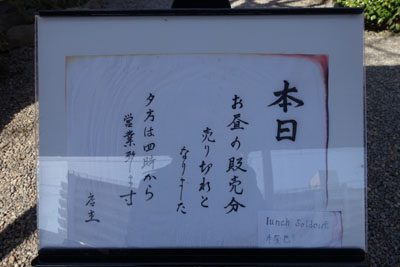 本日
お昼の販売分
売り切れと
なりました
夕方は四時から
営業致します
店主
lunch Soldout